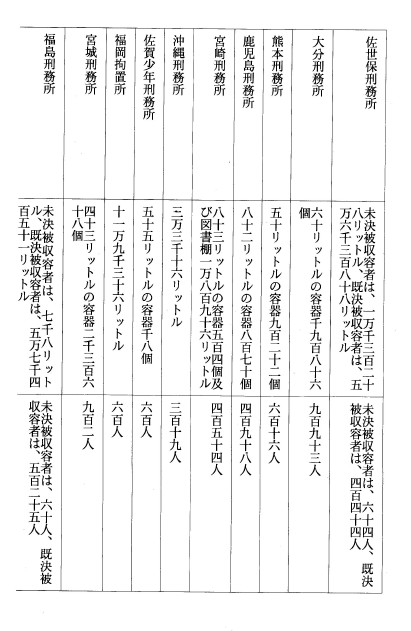 佐世保刑務所
未決被収容者は、一万千三百二十
八リットル、既決被収容者は、五
万六千三百八十八リットル
未決被収容者は、六十四人、既決
被収容者は、四百四十四人
大分刑務所
六十リットルの容器千九百八十六
個
九百九十三人
熊本刑務所
五十リットルの容器九百二十二個
六百十六人
鹿児島刑務所
八十二リットルの容器八百七十個
四百九十八人
宮崎刑務所
八十三リットルの容器五百四個及
び図書棚一万八百九十六リットル
四百五十四人
沖縄刑務所
三万三千十六リットル
三百十九人
佐賀少年刑務所
五十五リットルの容器千八個
六百人
福岡拘置所
十一万九千三十六リットル
六百人
宮城刑務所
四十三リットルの容器二千三百六
十八個
九百二人
福島刑務所
未決被収容者は、七千八リット
ル、既決被収容者は、五万七千四
百五十一リットル
未決被収容者は、六十人、既決被
収容者は、五百二十五人